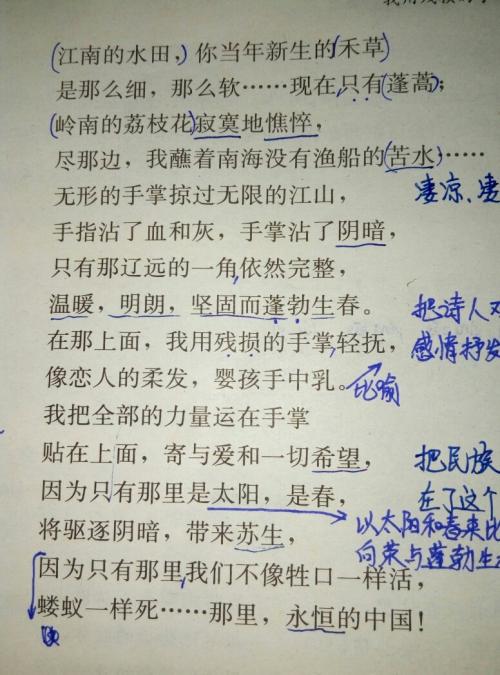 江南的水田，你当年新生的禾草
是那么细，那么软……现在只有蓬蒿；
岭南的荔枝花寂寞地憔悴，
尽那边，我蘸着南海没有渔船的苦水……
无形的手掌掠过无限的江山，
凄凉、凄
手指沾了血和灰，手掌沾了阴暗，
只有那辽远的一角依然完整，
温暖，明朗，坚固而蓬勃生春。
把诗人对
在那上面，我用残损的手掌轻抚，
感情抒发
像恋人的柔发，婴孩手中乳。
比喻
我把全部的力量运在手掌
贴在上面，寄与爱和一切希望，
把民族
因为只有那里是太阳，是春，
在了这个
将驱逐阴暗，带来苏生，
以太阳和春来比
向荣与蓬勃生
因为只有那里我们不像牲口一样活，
蝼蚁一样死……那里，永恒的中国！